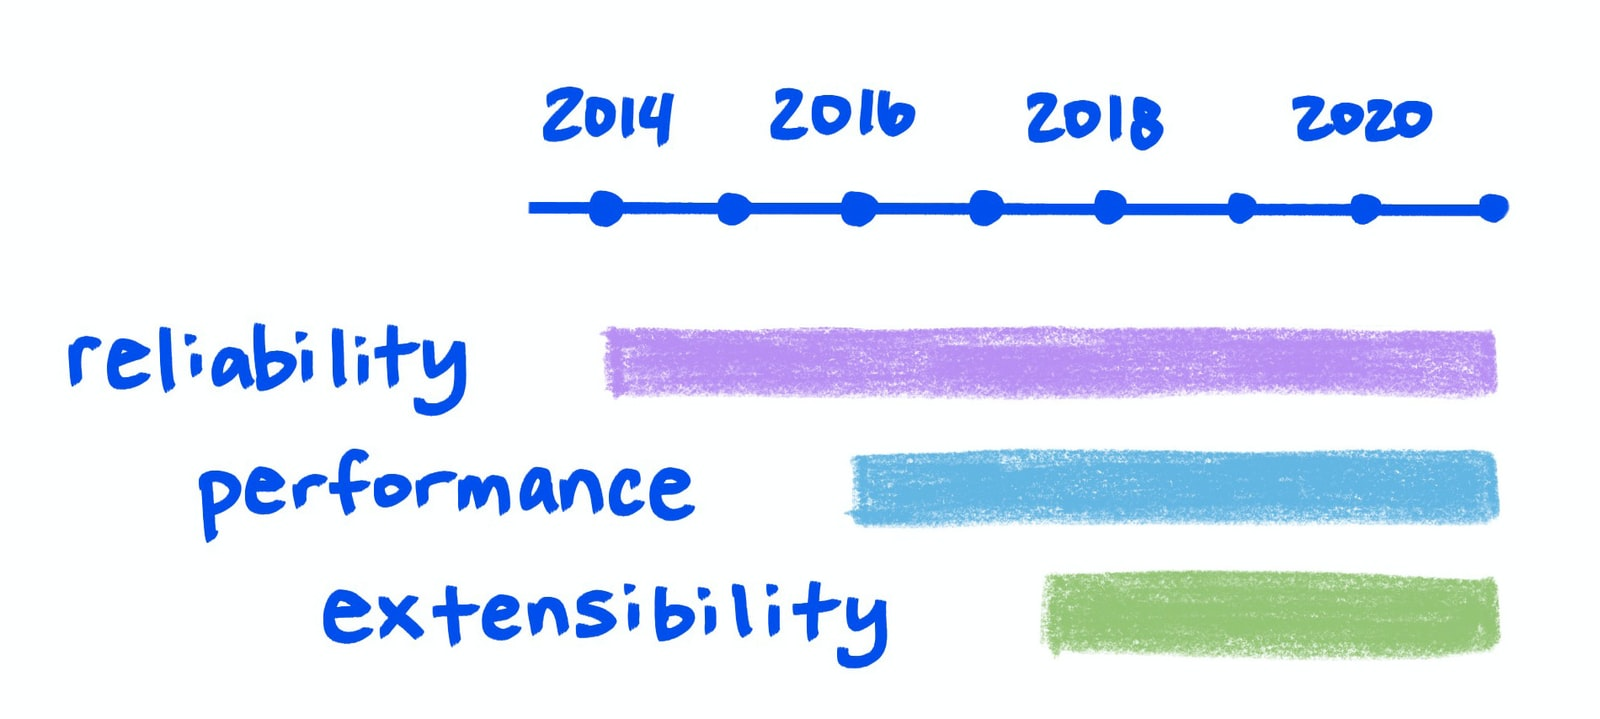 2014 2016 2018 2020
reliability
performance
extensibility